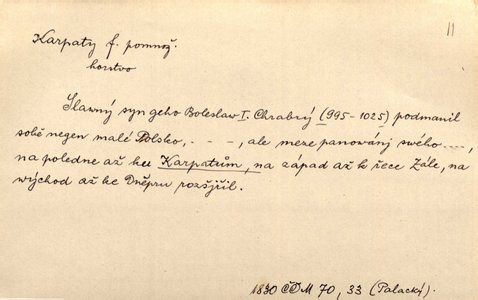 11
Karpaty f. pomnož.
horstvo
Slawný syn geho Boleslaw I. Chrabrý (995-1025) podmanil
sobě negen malé Polsko, . - - , ale meze panowánj swého ...,
na poledne až ku Karpatům, na západ až k řece Zále, na
východ až ke Dněpru rozšjřil.
1830 ČČM 70, 33 (Palacký).